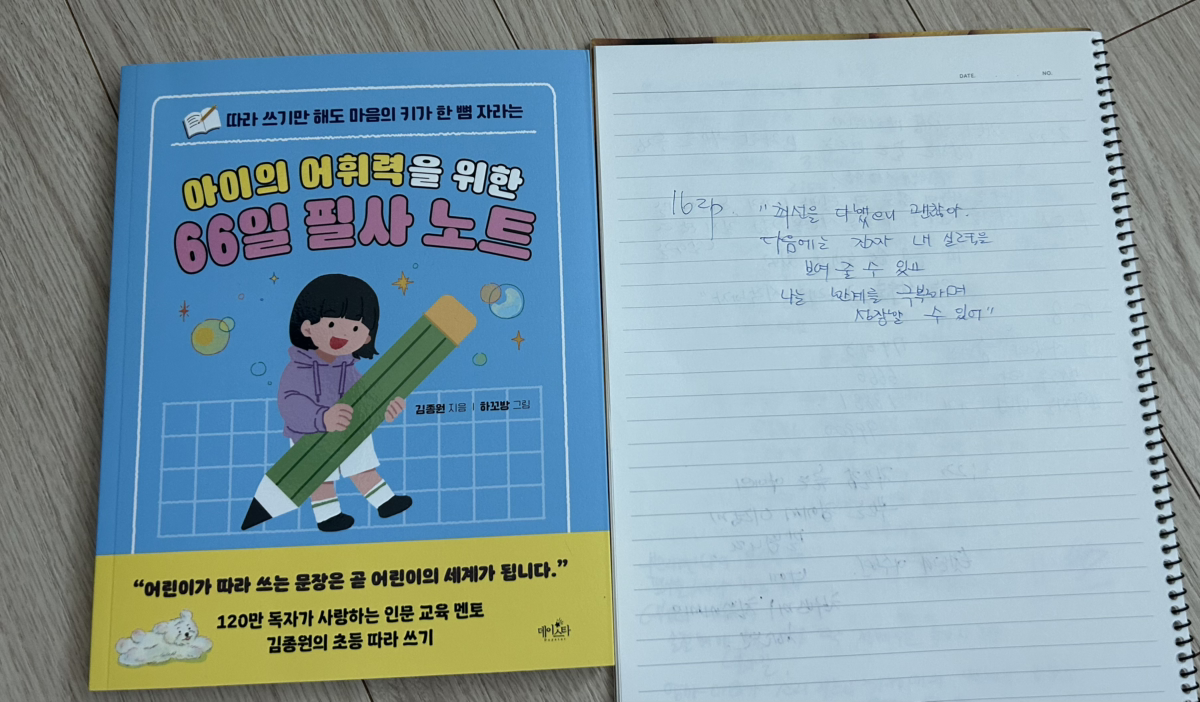 따라 쓰기만 해도 마음의 키가 한 뼘 자라는
아이의 어휘력을 위한
66일 필사 노트
김종원 지음 | 하꼬방 그림
“어린이가 따라 쓰는 문장은 곧 어린이의 세계가 됩니다.”
120만 독자가 사랑하는 인문 교육 멘토
김종원의 초등 따라 쓰기
데이스타
DATE. NO.
16 "최선을 다했으니 괜찮아.
다음에는 진짜 내 실력을
보여 줄 수 있고
나는 한계를 극복하며
성장할 수 있어"